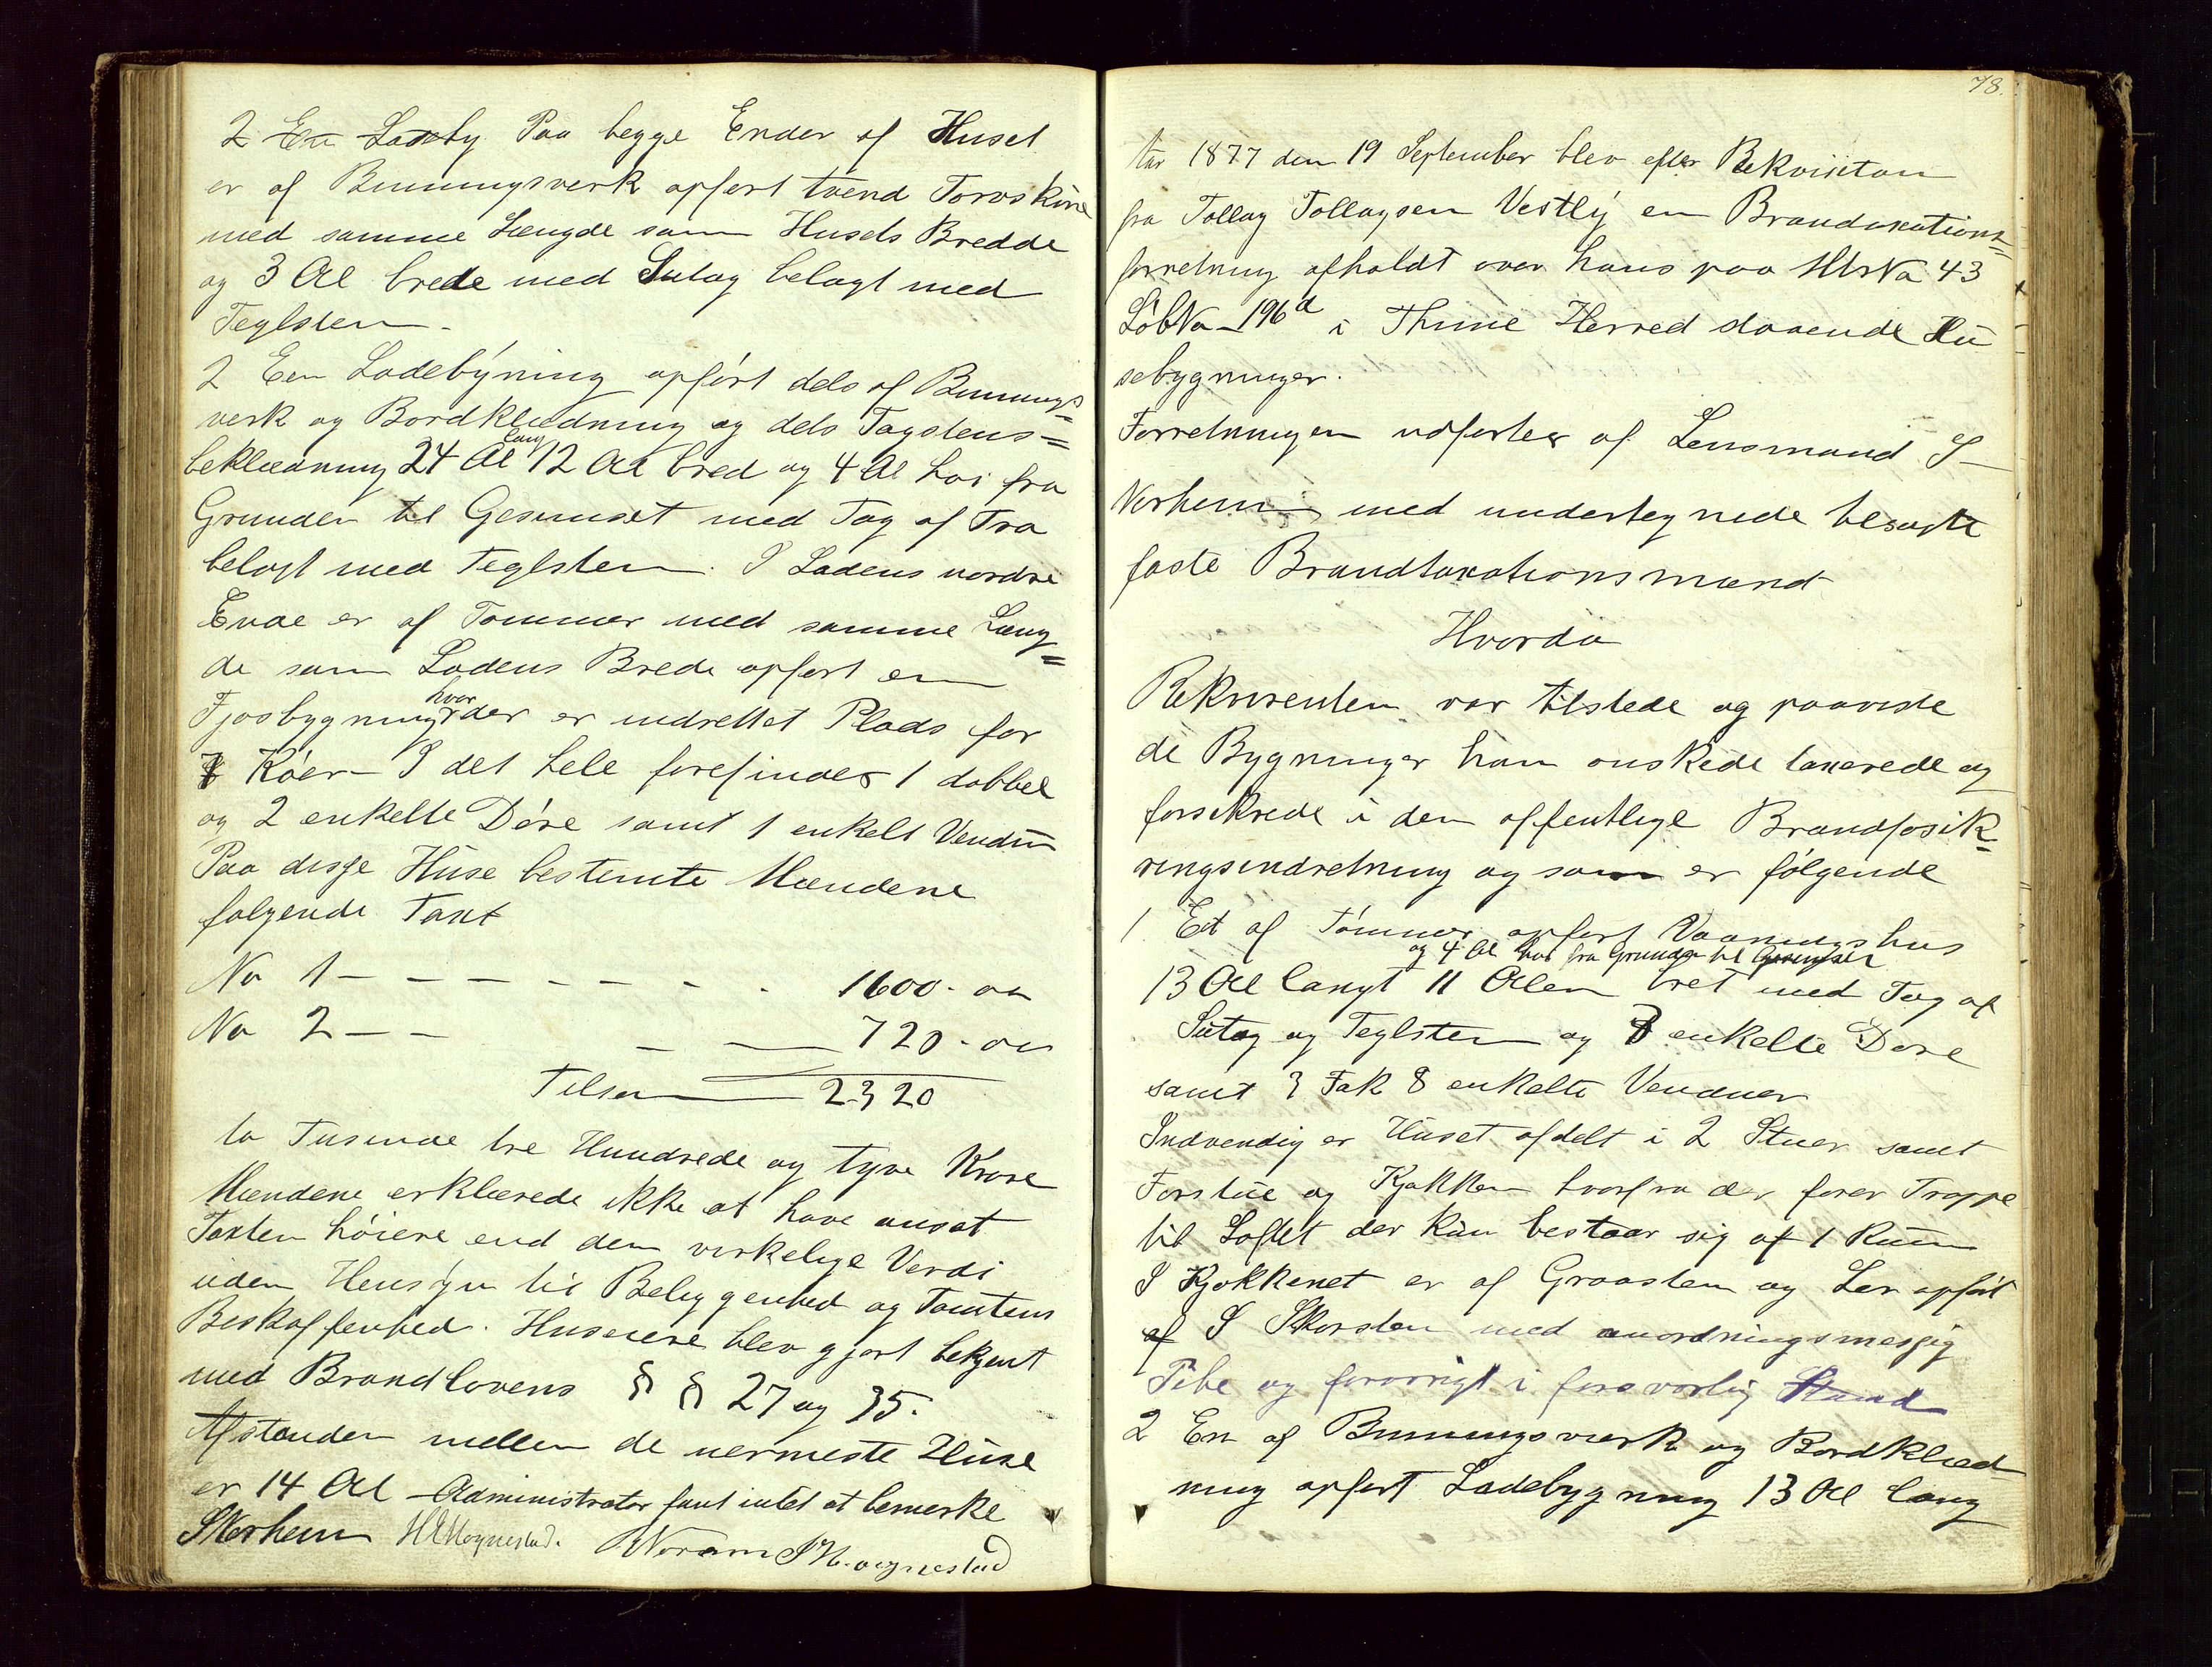 2 En Ladeby Paa begge Ender af Huset
er af Binningsverk opført tvend Torvskine
med samme Længde som Husets Bredde
og 3 Al brede med Sutag belagt med
Teglsten
2 Een Ladebÿning opført dels af Binnings=
verk og Bordklædning og dels Tagstens=
beklædning 24 Al lang 12 Al bred og 4 Al høi fra
Grunden til Gesimset med Tag af Træ
belagt med Teglsten. I Ladens nordre
Ende er af Tømmer med samme Læng=
de som Ladens Brede opført en
Fjøsbygning hvor der er indrettet Plads for
7 Køer - I det hele forefindes 1 dobbel
og 2 enkelte Døre samt 1 enkelt Vendu
Paa disse Huse bestemte Mændene
følgende Taxt
No 1 - - - - - - - - 1600 - øre
No 2 - - - - 720 - øre
Tilsam 2320
to Tusinde tre Hundrede og tyve Krone
Mændene erklærede ikke at have ansat
Taxten høiere end den virkelige Verdi
uden Hensÿn til Beliggenhed og Tomtens
Beskaffenhed. Huseiere blev gjort bekjent
med Brandlovens § § 27 og 35.
Afstanden mellem de nermeste Huse
er 14 Al - Administrator fant intet at bemerke
S Nerheim H E Mognestad. Noram S H. ognestad
78.
Aar 1877 den 19 September blev efter Rekvisition
fra Tollag Tollagsen Vestlÿ en Brandtaxations=
forretning afholdt over hans paa MtrNo 43
LøbNo 196d i Thime Herred staaende Hu
sebygninger.
Forretningen udførtes af Lensmand S
Nerheim med undertegnede besagte
faste Brandtaxationsmænd
Hvorda
Rekvirenten var tilstede og paaviste
de Bygninger han ønskede taxerede og
forsikrede i den offentlige Brandfosik=
ringsindretning og som er følgende
1 Et af Tømmer opført Vaaningshus
og 4 Al høi fra Grunden til Gesimset
13 Al langt 11 Alen bret med Tag af
Sutag og Teglsten og 7 enkelte Døre
samt 3 Fak 8 enkelte Venduer
Indvendig er Huset afdelt i 2 Stuer samt
Forstue og Kjøkken hvorfra der fører Trappe
til Loftet der kun bestaar sig af 1 Rum
I Kjøkkenet er af Graasten og Ler opført
af I Skorsten med anordningsmessig
Pibe og forøvrigt i forsvarlig Stand
2 En af Binningsverk og Bordklæd
ning opført Ladebygning 13 Al lang